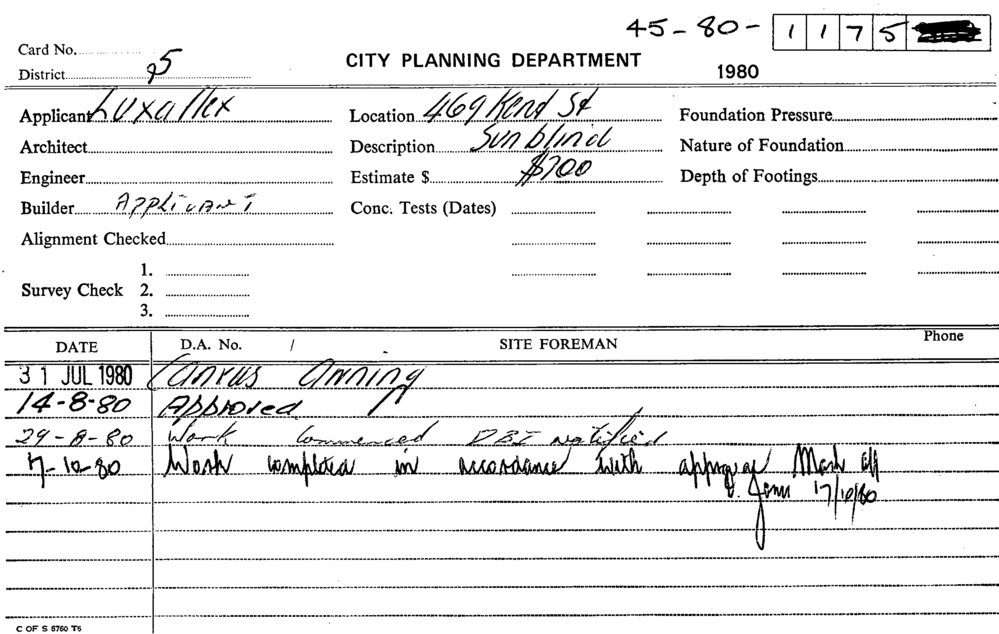 45-80- 1 1 7 5
Card No.
District 5
CITY PLANNING DEPARTMENT
1980
Applicant Luxaflex
Location 469 Kent St
Foundation Pressure
Architect
Description Sunblind
Nature of Foundation
Engineer
Estimate $ $700
Depth of Footings
Builder APPLICANT
Conc. Tests (Dates)
Alignment Checked
Survey Check
1.
2.
3.
DATE D.A. No. / SITE FOREMAN Phone
31 JUL 1980 Canvas Awning
14-8-80 Approved
29-8-80 Work Commenced DBI notified
17-10-80 Work completed in accordance with Mark off
17/10/80
C OF S 6760 T6